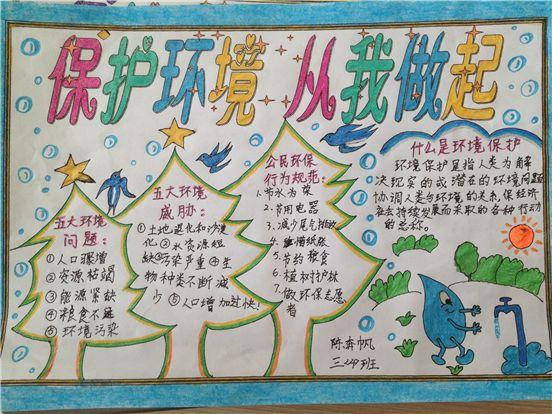 保护环境 从我做起
五大环境
问题：
①人口骤增
②资源枯竭
③能源紧缺
④粮食不足
⑤环境污染
五大环境
威胁：
①土地退化和沙漠
化②水资源短
缺③污染严重④生
物种类不断减
少⑤人口增加过快！
公民环保
行为规范：
1.节水为荣
2.节用电器
3.减少尾气排放
4.珍惜纸张
5.节约粮食
6.植树护林
7.做环保志愿
者
什么是环境保护
环境保护是指人类为解
决现实的或潜在的环境问题
协调人类与环境的关系，保经济
社会持续发展而采取的各种行动
的总称。
陈奔帆
三(4)班